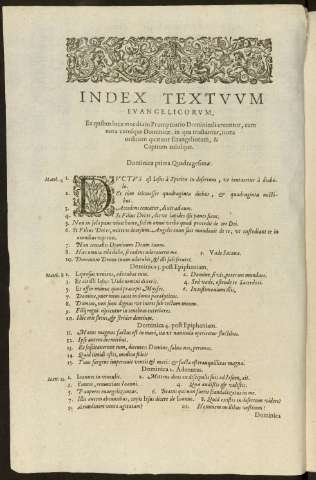 INDEX TEXTVVM
EVANGELICORVM,
Ex quibus hoc Promptuario Dominicali
nota cuiusque Dominicæ, in qua tractantur, iuxta
ordinem quatuor Euangelistarum, &
Capitum cuiusque.
Dominica prima Quadragesimæ.
Matt. 4 1. DVCTVS est Iesus à Spiritu in desertum, vt tentaretur à diabo-
lo.
2. Et cum ieiunasset quadraginta diebus, & quadraginta nocti-
bus.
3. Accedens tentator, dixit ad eum.
4. Si Filius Dei es, dic vt lapides isti panes fiant.
5. Non in solo pane viuit homo, sed in omni verbo quod procedit de ore Dei.
6. Si Filius Dei es, mitte te deorsum. Angelis suis mandauit de te, vt custodiant te in
omnibus
7. Non tentabis Dominum Deum tuum.
8. Hæc omnia tibi dabo, si cadens adoraueris me. 9. Vade Satana.
10. Dominum Deum tuum adorabis, & illi soli seruies.
Dominica 3. post Epiphaniam.
Matt. 8 1. Leprosus veniens, adorabat eum. 2. Domine si vis, potes me mundare.
3. Et extendens Iesus manum tetigit. 4. Sed vade, ostende te Sacerdoti.
5. Et offer munus quod præcepit Moyses. 6. In testimonium illis.
7. Domine, puer meus iacet in domo paralyticus.
8. Domine, non sum dignus vt intres sub tectum meum.
9. Filij regni eijcientur in tenebras exteriores.
10. Ibi erit fletus, & stridor dentium.
Dominica 4. post Epiphaniam.
11. Motus magnus factus est in mari, ita vt nauicula operiretur fluctibus.
12. Ipse autem dormiebat.
13. Et suscitauerunt eum, dicentes: Domine, salua nos, perimus.
14. Quid timidi estis, modicæ fidei?
15. Tunc surgens imperauit ventis & mari: & facta est tranquillitas magna.
Dominica 2. Aduentus.
Matt. 11 1. Ioannes in vinculis. 2. Mittens duos ex discipulis suis ad Iesum, ait.
3. Euntes, renunciate Ioanni. 4. Quæ audistis & vidistis.
5. Pauperes euangelizantur. 6. Beatus qui non fuerit scandalizatus in me.
7. Illis autem abeuntibus, cœpit Iesus dicere de Ioanne. 8. Quid existis in desertum videre?
9. Arundinem vento agitatam?
Dominica